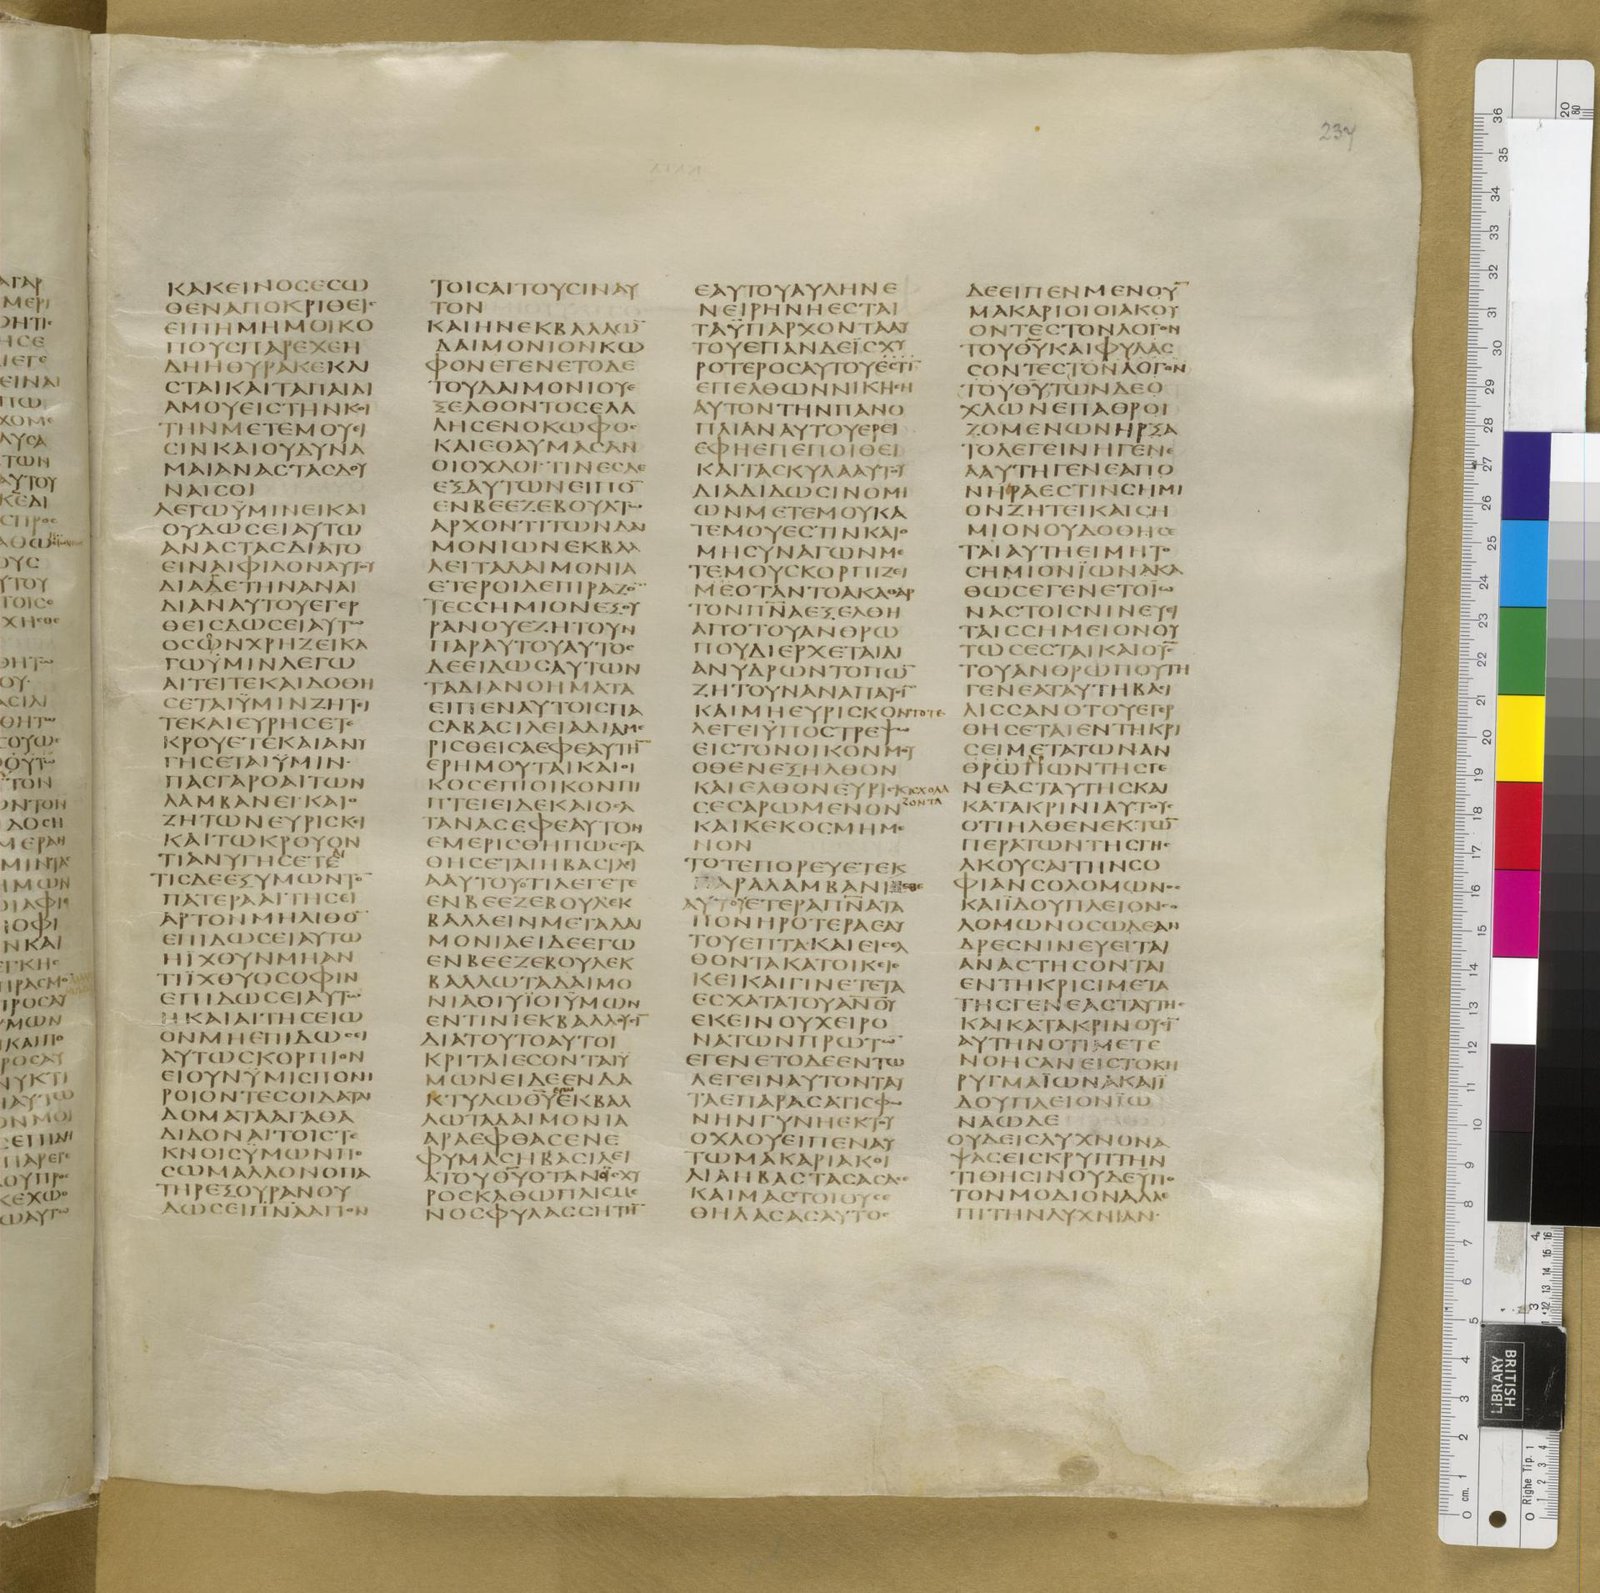 237
ΚΑΚΕΙΝΟϹΕϹΩ
ΘΕΝΑΠΟΚΡΙΘΕΙϹ
ΕΙΠΗΜΗΜΟΙΚΟ
ΠΟΥϹΠΑΡΕΧΕΗ
ΔΗΗΘΥΡΑΚΕΚΛΙ
ϹΤΑΙΚΑΙΤΑΠΑΙΔΙ
ΑΜΟΥΕΙϹΤΗΝΚΟΙ
ΤΗΝΜΕΤΕΜΟΥΕΙ
ϹΙΝΚΑΙΟΥΔΥΝΑ
ΜΑΙΑΝΑϹΤΑϹΔΟΥ
ΝΑΙϹΟΙ
ΛΕΓΩΫΜΙΝΕΙΚΑΙ
ΟΥΔΩϹΕΙΑΥΤΩ
ΑΝΑϹΤΑϹΔΙΑΤΟ
ΕΙΝΑΙΦΙΛΟΝΑΥΤΟΥ
ΔΙΑΔΕΤΗΝΑΝΑΙ
ΔΙΑΝΑΥΤΟΥΕΓΕΡ
ΘΕΙϹΔΩϹΕΙΑΥΤΩ
ΟϹΩΝΧΡΗΖΕΙΚΑ
ΓΩΫΜΙΝΛΕΓΩ
ΑΙΤΕΙΤΕΚΑΙΔΟΘΗ
ϹΕΤΑΙΫΜΙΝΖΗΤΙ
ΤΕΚΑΙΕΥΡΗϹΕΤΕ
ΚΡΟΥΕΤΕΚΑΙΑΝΥ
ΓΗϹΕΤΑΙΫΜΙΝ·
ΠΑϹΓΑΡΟΑΙΤΩΝ
ΛΑΜΒΑΝΕΙΚΑΙΟ
ΖΗΤΩΝΕΥΡΙϹΚΙ
ΚΑΙΤΩΚΡΟΥΟΝ
ΤΙΑΝΥΓΗϹΕΤΕ
ΤΙϹΔΕΕΞΥΜΩΝΤΟ̅
ΠΑΤΕΡΑΑΙΤΗϹΕΙ
ΑΡΤΟΝΜΗΛΙΘΟ̅
ΕΠΙΔΩϹΕΙΑΥΤΩ
ΗΙΧΘΥΝΜΗΑΝ
ΤΙΪΧΘΥΟϹΟΦΙΝ
ΕΠΙΔΩϹΕΙΑΥΤΩ
ΗΚΑΙΑΙΤΗϹΕΙΩ
ΟΝΜΗΕΠΙΔΩϹΕΙ
ΑΥΤΩϹΚΟΡΠΙΟΝ
ΕΙΟΥΝΫΜΙϹΠΟΝΗ
ΡΟΙΟΝΤΕϹΟΙΔΑΤΑΙ
ΔΟΜΑΤΑΑΓΑΘΑ
ΔΙΔΟΝΑΙΤΟΙϹΤΕ
ΚΝΟΙϹΫΜΩΝΠΟ
ϹΩΜΑΛΛΟΝΟΠΑ
ΤΗΡΕΞΟΥΡΑΝΟΥ
ΔΩϹΕΙΠΝΑΑΓΙΟΝ
ΤΟΙϹΑΙΤΟΥϹΙΝΑΥ
ΤΟΝ
ΚΑΙΗΝΕΚΒΑΛΛΩ̅
ΔΑΙΜΟΝΙΟΝΚΩ
ΦΟΝΕΓΕΝΕΤΟΔΕ
ΤΟΥΔΑΙΜΟΝΙΟΥΕ
ΞΕΛΘΟΝΤΟϹΕΛΑ
ΛΗϹΕΝΟΚΩΦΟϹ
ΚΑΙΕΘΑΥΜΑϹΑΝ
ΟΙΟΧΛΟΙ·ΤΙΝΕϹΔΕ
ΕΞΑΥΤΩΝΕΙΠΟ̅
ΕΝΒΕΕΖΕΒΟΥΛΤΩ
ΑΡΧΟΝΤΙΤΩΝΔΑΙ
ΜΟΝΙΩΝΕΚΒΑΛ
ΛΕΙΤΑΔΑΙΜΟΝΙΑ
ΕΤΕΡΟΙΔΕΠΙΡΑΖΟ̅
ΤΕϹϹΗΜΙΟΝΕΞΟΥ
ΡΑΝΟΥΕΖΗΤΟΥΝ
ΠΑΡΑΥΤΟΥΑΥΤΟϹ
ΔΕΕΙΔΩϹΑΥΤΩΝ
ΤΑΔΙΑΝΟΗΜΑΤΑ
ΕΙΠΕΝΑΥΤΟΙϹΠΑ
ϹΑΒΑϹΙΛΕΙΑΔΙΑΜΕ
ΡΙϹΘΕΙϹΑΕΦΕΑΥΤΗ̅
ΕΡΗΜΟΥΤΑΙΚΑΙΟΙ
ΚΟϹΕΠΙΟΙΚΟΝΠΙ
ΠΤΕΙΕΙΔΕΚΑΙΟϹΑ
ΤΑΝΑϹΕΦΕΑΥΤΟΝ
ΕΜΕΡΙϹΘΗΠΩϹϹΤΑ
ΘΗϹΕΤΑΙΗΒΑϹΙΛΙ
ΑΑΥΤΟΥΟΤΙΛΕΓΕΤΕ
ΕΝΒΕΕΖΕΒΟΥΛΕΚ
ΒΑΛΛΕΙΝΜΕΤΑΔΑΙ
ΜΟΝΙΑΕΙΔΕΕΓΩ
ΕΝΒΕΕΖΕΒΟΥΛΕΚ
ΒΑΛΛΩΤΑΔΑΙΜΟ
ΝΙΑΟΙΥΪΟΙΫΜΩΝ
ΕΝΤΙΝΙΕΚΒΑΛΛΟΥϹΙ̅
ΔΙΑΤΟΥΤΟΑΥΤΟΙ
ΚΡΙΤΑΙΕϹΟΝΤΑΙΫ
ΜΩΝΕΙΔΕΕΝΔΑ
ΚΤΥΛΩΘΥΕΚΒΑΛ
ΛΩΤΑΔΑΙΜΟΝΙΑ
ΑΡΑΕΦΘΑϹΕΝΕ
ΦΥΜΑϹΗΒΑϹΙΛΕΙ
ΑΤΟΥΘΥΟΤΑΝΟΪϹΧΥ
ΡΟϹΚΑΘΩΠΛΙϹΜΕ
ΝΟϹΦΥΛΑϹϹΗΤΗ̅
ΕΑΥΤΟΥΑΥΛΗΝΕ
ΝΕΙΡΗΝΗΕϹΤΑΙ
ΤΑΫΠΑΡΧΟΝΤΑΑΥ
ΤΟΥΕΠΑΝΔΕΪϹΧΥ
ΡΟΤΕΡΟϹΑΥΤΟΥΕϹΤΙ̅
ΕΠΕΛΘΩΝΝΙΚΗϹΗ
ΑΥΤΟΝΤΗΝΠΑΝΟ
ΠΛΙΑΝΑΥΤΟΥΕΡΕΙ
ΕΦΗΕΠΕΠΟΙΘΕΙ
ΚΑΙΤΑϹΚΥΛΑΑΥΤΟΥ
ΔΙΑΔΙΔΩϹΙΝΟΜΗ
ΩΝΜΕΤΕΜΟΥΚΑ
ΤΕΜΟΥΕϹΤΙΝΚΑΙΟ
ΜΗϹΥΝΑΓΩΝΜΕ
ΤΕΜΟΥϹΚΟΡΠΙΖΕΙ
ΜΕΟΤΑΝΤΟΑΚΑΘΑΡ
ΤΟΝΠΝΑΕΞΕΛΘΗ
ΑΠΟΤΟΥΑΝΘΡΩ
ΠΟΥΔΙΕΡΧΕΤΑΙΔΙ
ΑΝΥΔΡΩΝΤΟΠΩ̅
ΖΗΤΟΥΝΑΝΑΠΑΥϹΙ̅
ΚΑΙΜΗΕΥΡΙϹΚΟΝΤΟΤΕ
ΛΕΓΕΙΫΠΟϹΤΡΕΨΩ
ΕΙϹΤΟΝΟΙΚΟΝΜΟΥ
ΟΘΕΝΕΞΗΛΘΟΝ
ΚΑΙΕΛΘΟΝΕΥΡΙϹΚΙϹΧΟΛΑ
ΖΟΝΤΑ
ϹΕϹΑΡΩΜΕΝΟΝ
ΚΑΙΚΕΚΟϹΜΗΜΕ
ΝΟΝ
ΤΟΤΕΠΟΡΕΥΕΤΕΚ
ΠΑΡΑΛΑΜΒΑΝΙ
ΑΥΤΟΥΕΤΕΡΑΠΝΑΤΑ
ΠΟΝΗΡΟΤΕΡΑΕΑΥ
ΤΟΥΕΠΤΑ·ΚΑΙΕΙϹΕΛ
ΘΟΝΤΑΚΑΤΟΙΚΕΙΕ
ΚΕΙΚΑΙΓΙΝΕΤΕΤΑ
ΕϹΧΑΤΑΤΟΥΑΝΟΥ
ΕΚΕΙΝΟΥΧΕΙΡΟ
ΝΑΤΩΝΠΡΩΤΩ
ΕΓΕΝΕΤΟΔΕΕΝΤΩ
ΛΕΓΕΙΝΑΥΤΟΝΤΑΥ
ΤΑΕΠΑΡΑϹΑΤΙϹΦΩ
ΝΗΝΓΥΝΗΕΚΤΟΥ
ΟΧΛΟΥΕΙΠΕΝΑΥ
ΤΩΜΑΚΑΡΙΑΗΚΟΙ
ΛΙΑΗΒΑϹΤΑϹΑϹΑϹΕ
ΚΑΙΜΑϹΤΟΙΟΥϹΕ
ΘΗΛΑϹΑϹΑΥΤΟϹ
ΔΕΕΙΠΕΝΜΕΝΟΥ̅
ΜΑΚΑΡΙΟΙΟΙΑΚΟΥ
ΟΝΤΕϹΤΟΝΛΟΓΟΝ
ΤΟΥΘΥΚΑΙΦΥΛΑϹ
ϹΟΝΤΕϹΤΟΝΛΟΓΟΝ
ΤΟΥΘΥΤΩΝΔΕΟ
ΧΛΩΝΕΠΑΘΡΟΙ
ΖΟΜΕΝΩΝΗΡΞΑ
ΤΟΛΕΓΕΙΝΗΓΕΝΕ
ΑΑΥΤΗΓΕΝΕΑΠΟ
ΝΗΡΑΕϹΤΙΝϹΗΜΙ
ΟΝΖΗΤΕΙΚΑΙϹΗ
ΜΙΟΝΟΥΔΟΘΗϹΕ
ΤΑΙΑΥΤΗΕΙΜΗΤΟ
ϹΗΜΙΟΝΪΩΝΑΚΑ
ΘΩϹΕΓΕΝΕΤΟΪΩ
ΝΑϹΤΟΙϹΝΙΝΕΥΕΙ
ΤΑΙϹϹΗΜΕΙΟΝΟΥ
ΤΩϹΕϹΤΑΙΚΑΙΟΥϹ
ΤΟΥΑΝΘΡΩΠΟΥΤΗ
ΓΕΝΕΑΤΑΥΤΗΒΑϹΙ
ΛΙϹϹΑΝΟΤΟΥΕΓΕΡ
ΘΗϹΕΤΑΙΕΝΤΗΚΡΙ
ϹΕΙΜΕΤΑΤΩΝΑΝ
ΘΡΩΠΩΝΤΗϹΓΕ
ΝΕΑϹΤΑΥΤΗϹΚΑΙ
ΚΑΤΑΚΡΙΝΙΑΥΤΟΥϹ
ΟΤΙΗΛΘΕΝΕΚΤΩ̅
ΠΕΡΑΤΩΝΤΗϹΓΗϹ
ΑΚΟΥϹΑΙΤΗΝϹΟ
ΦΙΑΝϹΟΛΟΜΩΝΟϹ
ΚΑΙΪΔΟΥΠΛΕΙΟΝϹΟ
ΛΟΜΩΝΟϹΩΔΕΑΝ
ΔΡΕϹΝΙΝΕΥΕΙΤΑΙ
ΑΝΑϹΤΗϹΟΝΤΑΙ
ΕΝΤΗΚΡΙϹΙΜΕΤΑ
ΤΗϹΓΕΝΕΑϹΤΑΥΤΗϹ
ΚΑΙΚΑΤΑΚΡΙΝΟΥϹΙ̅
ΑΥΤΗΝΟΤΙΜΕΤΕ
ΝΟΗϹΑΝΕΙϹΤΟΚΗ
ΡΥΓΜΑΪΩΝΑΚΑΙΪ
ΔΟΥΠΛΕΙΟΝΪΩ
ΝΑΩΔΕ
ΟΥΔΕΙϹΛΥΧΝΟΝΑ
ΨΑϹΕΙϹΚΡΥΠΤΗΝ
ΤΙΘΗϹΙΝΟΥΔΕΫΠΟ
ΤΟΝΜΟΔΙΟΝΑΛΛΕ
ΠΙΤΗΝΛΥΧΝΙΑΝ·
BRITISH
LIBRARY